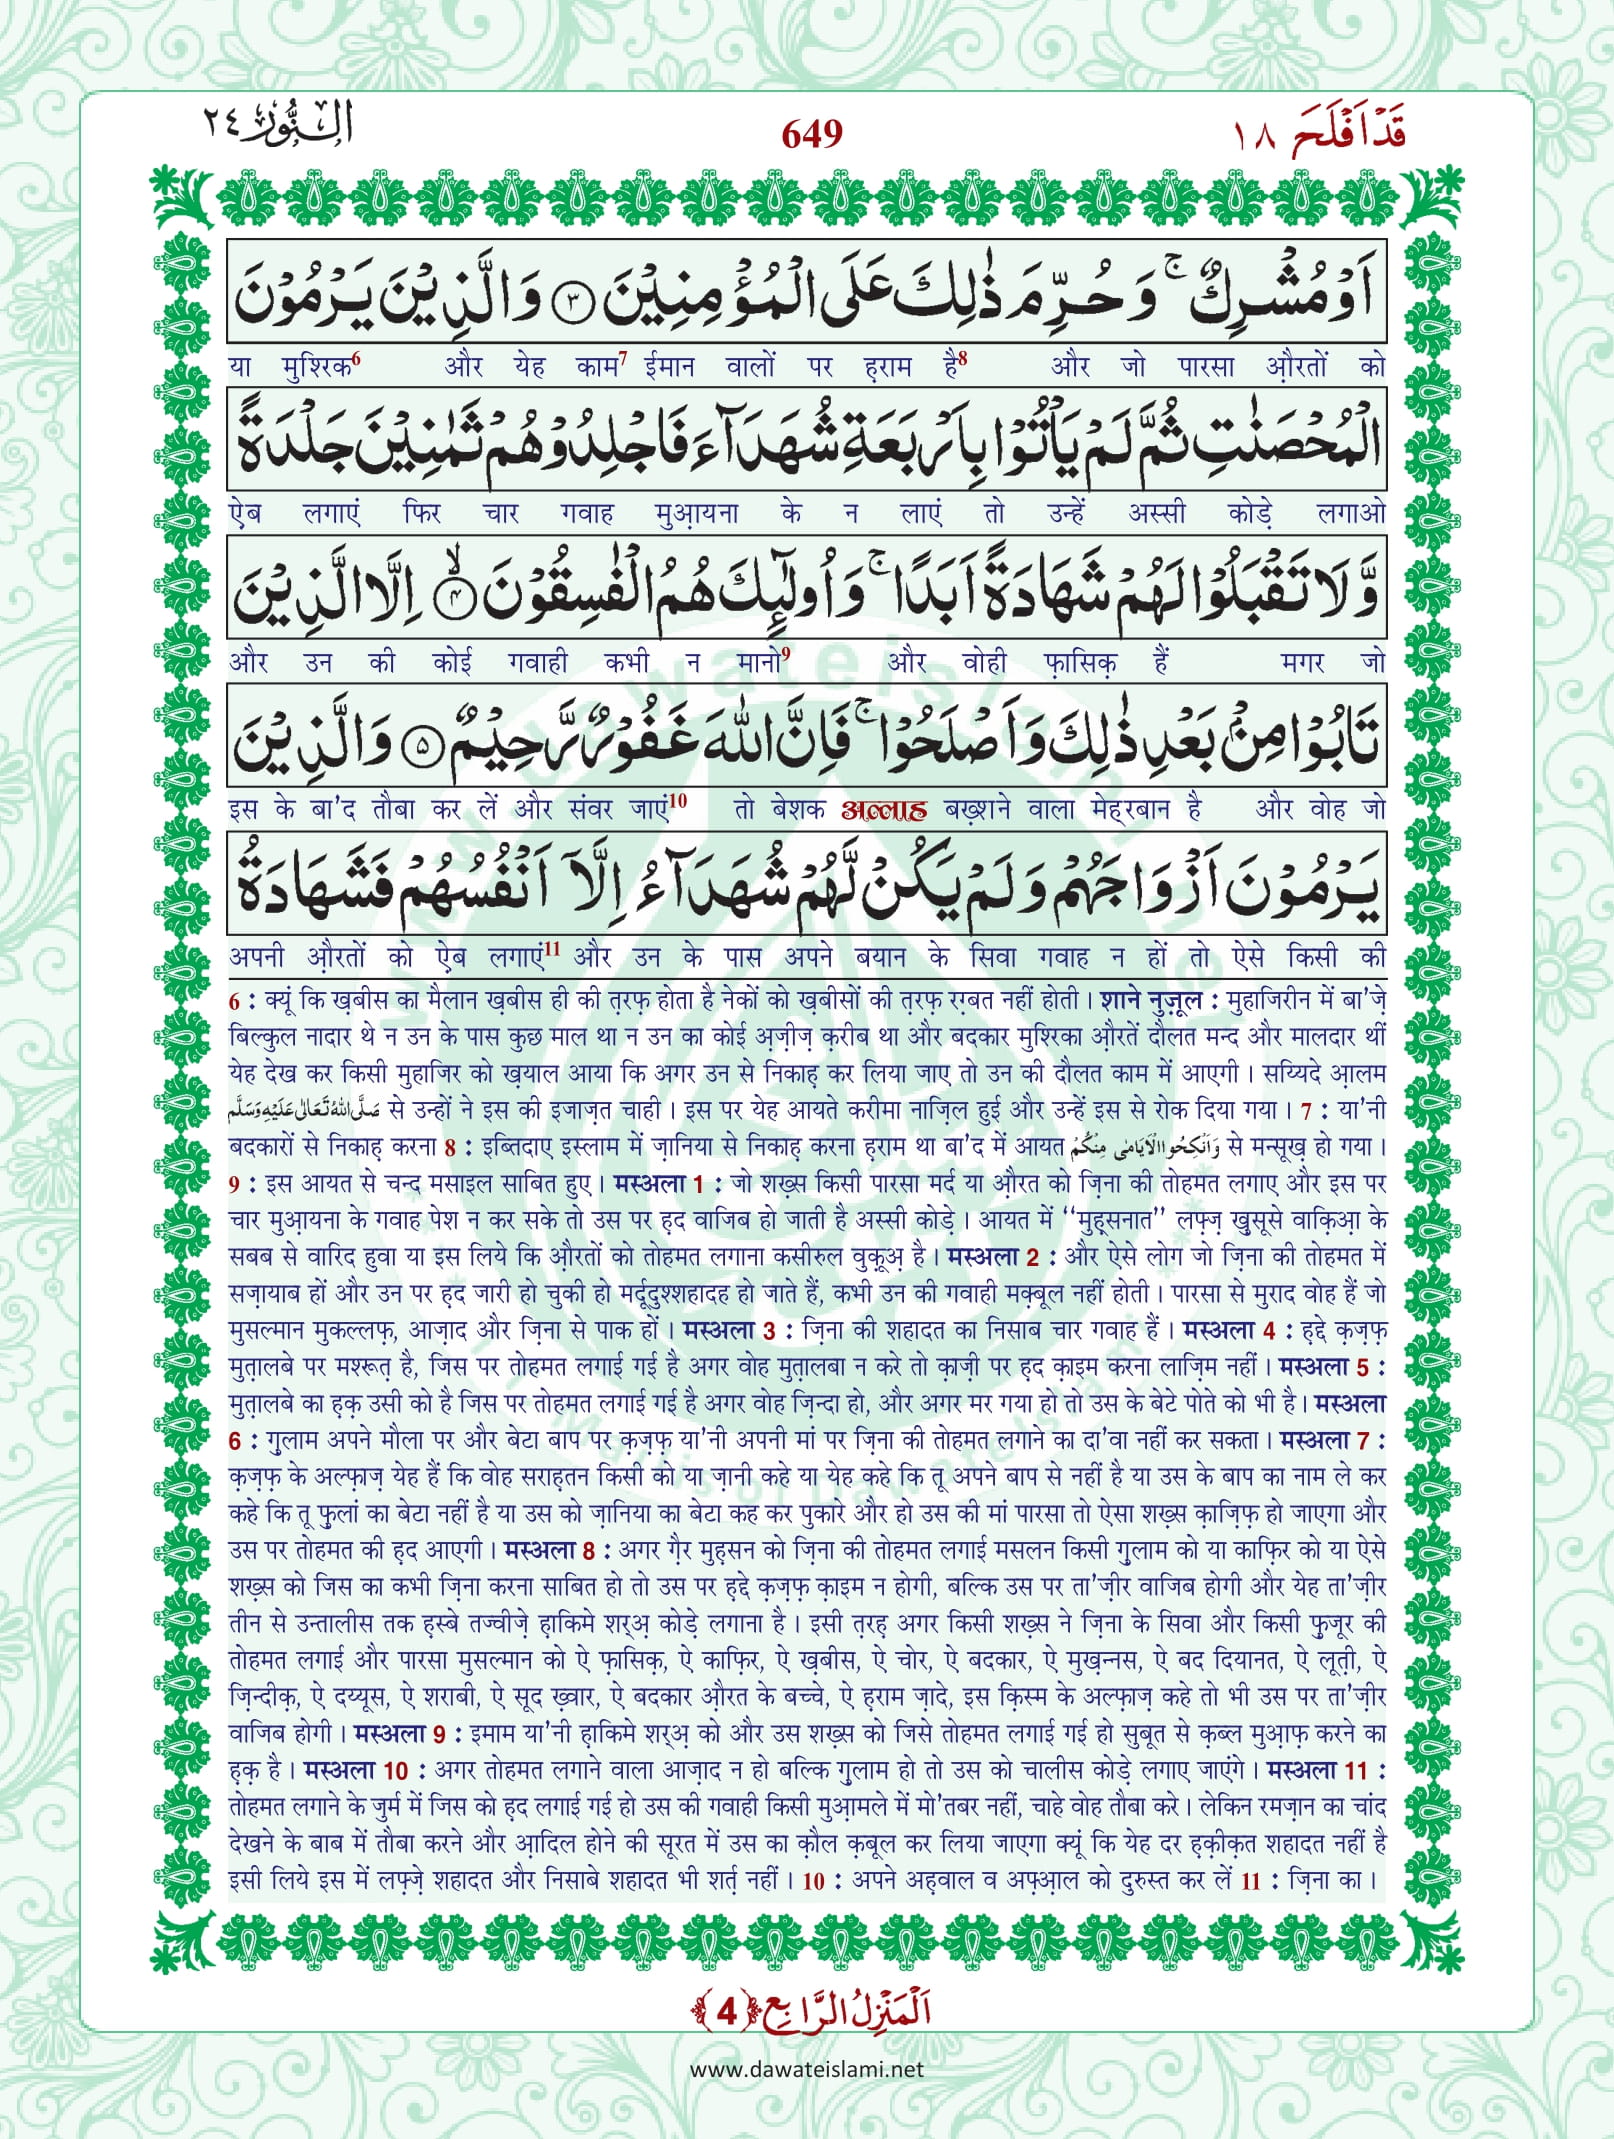 النُّوْر ٢٤
649
قَدْ اَفْلَحَ ١٨
اَوْ مُشْرِكٌ ۚ وَ حُرِّمَ ذٰلِكَ عَلَى الْمُؤْمِنِيْنَ ﴿۳﴾ وَ الَّذِيْنَ يَرْمُوْنَ
या मुश्रिक6 और येह काम7 ईमान वालों पर ह़राम है8 और जो पारसा औ़रतों को
الْمُحْصَنٰتِ ثُمَّ لَمْ يَاْتُوْا بِاَرْبَعَةِ شُهَدَآءَ فَاجْلِدُوْهُمْ ثَمٰنِيْنَ جَلْدَةً
ऐब लगाएं फिर चार गवाह मुआ़यना के न लाएं तो उन्हें अस्सी कोड़े लगाओ
وَّ لَا تَقْبَلُوْا لَهُمْ شَهَادَةً اَبَدًا ۚ وَ اُولٰٓىِٕكَ هُمُ الْفٰسِقُوْنَ ۙ﴿۴﴾ اِلَّا الَّذِيْنَ
और उन की कोई गवाही कभी न मानो9 और वोही फ़ासिक़ हैं मगर जो
تَابُوْا مِنْۢ بَعْدِ ذٰلِكَ وَ اَصْلَحُوْا ۚ فَاِنَّ اللّٰهَ غَفُوْرٌ رَّحِيْمٌ ﴿۵﴾ وَ الَّذِيْنَ
इस के बा’द तौबा कर लें और संवर जाएं10 तो बेशक अल्लाह बख़्शने वाला मेहरबान है और वोह जो
يَرْمُوْنَ اَزْوَاجَهُمْ وَ لَمْ يَكُنْ لَّهُمْ شُهَدَآءُ اِلَّاۤ اَنْفُسُهُمْ فَشَهَادَةُ
अपनी औ़रतों को ऐब लगाएं11 और उन के पास अपने बयान के सिवा गवाह न हों तो ऐसे किसी की
6 : क्यूं कि ख़बीस का मैलान ख़बीस ही की त़रफ़ होता है नेकों को ख़बीसों की त़रफ़ रग़्बत नहीं होती। शाने नुज़ूल : मुहाजिरीन में बा’ज़े
बिल्कुल नादार थे न उन के पास कुछ माल था न उन का कोई अ़ज़ीज़ क़रीब था और बदकार मुश्रिका औ़रतें दौलत मन्द और मालदार थीं
येह देख कर किसी मुहाजिर को ख़याल आया कि अगर उन से निकाह़ कर लिया जाए तो उन की दौलत काम में आएगी। सय्यिदे आ़लम
صَلَّى اللّٰهُ تَعَالٰى عَلَيْهِ وَسَلَّم से उन्हों ने इस की इजाज़त चाही। इस पर येह आयते करीमा नाज़िल हुई और उन्हें इस से रोक दिया गया। 7 : या’नी
बदकारों से निकाह़ करना 8 : इब्तिदाए इस्लाम में ज़ानिया से निकाह़ करना ह़राम था बा’द में आयत وَاَنْكِحُوا الْاَيَامٰى مِنْكُمْ से मन्सूख़ हो गया।
9 : इस आयत से चन्द मसाइल साबित हुए। मस्अला 1 : जो शख़्स किसी पारसा मर्द या औ़रत को ज़िना की तोहमत लगाए और इस पर
चार मुआ़यना के गवाह पेश न कर सके तो उस पर ह़द वाजिब हो जाती है अस्सी कोड़े। आयत में “मुह़्सनात” लफ़्ज़ ख़ुसूसे वाक़िआ़ के
सबब से वारिद हुवा या इस लिये कि औ़रतों को तोहमत लगाना कसीरुल वुक़ूअ़ है। मस्अला 2 : और ऐसे लोग जो ज़िना की तोहमत में
सज़ायाब हों और उन पर ह़द जारी हो चुकी हो मर्दूदुश्शहादह हो जाते हैं, कभी उन की गवाही मक़्बूल नहीं होती। पारसा से मुराद वोह हैं जो
मुसल्मान मुकल्लफ़, आज़ाद और ज़िना से पाक हों। मस्अला 3 : ज़िना की शहादत का निसाब चार गवाह हैं। मस्अला 4 : ह़द्दे क़ज़फ़
मुत़ालबे पर मश्रूत़ है, जिस पर तोहमत लगाई गई है अगर वोह मुत़ालबा न करे तो क़ाज़ी पर ह़द क़ाइम करना लाज़िम नहीं। मस्अला 5 :
मुत़ालबे का ह़क़ उसी को है जिस पर तोहमत लगाई गई है अगर वोह ज़िन्दा हो, और अगर मर गया हो तो उस के बेटे पोते को भी है। मस्अला
6 : ग़ुलाम अपने मौला पर और बेटा बाप पर क़ज़फ़ या’नी अपनी मां पर ज़िना की तोहमत लगाने का दा’वा नहीं कर सकता। मस्अला 7 :
क़ज़फ़ के अल्फ़ाज़ येह हैं कि वोह सराह़तन किसी को या ज़ानी कहे या येह कहे कि तू अपने बाप से नहीं है या उस के बाप का नाम ले कर
कहे कि तू फ़ुलां का बेटा नहीं है या उस को ज़ानिया का बेटा कह कर पुकारे और हो उस की मां पारसा तो ऐसा शख़्स क़ाज़िफ़ हो जाएगा और
उस पर तोहमत की ह़द आएगी। मस्अला 8 : अगर ग़ैर मुह़सन को ज़िना की तोहमत लगाई मसलन किसी ग़ुलाम को या काफ़िर को या ऐसे
शख़्स को जिस का कभी ज़िना करना साबित हो तो उस पर ह़द्दे क़ज़फ़ क़ाइम न होगी, बल्कि उस पर ता’ज़ीर वाजिब होगी और येह ता’ज़ीर
तीन से उन्तालीस तक ह़स्बे तज्वीज़े ह़ाकिमे शर्अ़ कोड़े लगाना है। इसी त़रह़ अगर किसी शख़्स ने ज़िना के सिवा और किसी फ़ुजूर की
तोहमत लगाई और पारसा मुसल्मान को ऐ फ़ासिक़, ऐ काफ़िर, ऐ ख़बीस, ऐ चोर, ऐ बदकार, ऐ मुख़न्नस, ऐ बद दियानत, ऐ लूत़ी, ऐ
ज़िन्दीक़, ऐ दय्यूस, ऐ शराबी, ऐ सूद ख़्वार, ऐ बदकार औ़रत के बच्चे, ऐ ह़राम ज़ादे, इस क़िस्म के अल्फ़ाज़ कहे तो भी उस पर ता’ज़ीर
वाजिब होगी। मस्अला 9 : इमाम या’नी ह़ाकिमे शर्अ़ को और उस शख़्स को जिसे तोहमत लगाई गई हो सुबूत से क़ब्ल मुआ़फ़ करने का
ह़क़ है। मस्अला 10 : अगर तोहमत लगाने वाला आज़ाद न हो बल्कि ग़ुलाम हो तो उस को चालीस कोड़े लगाए जाएंगे। मस्अला 11 :
तोहमत लगाने के जुर्म में जिस को ह़द लगाई गई हो उस की गवाही किसी मुआ़मले में मो’तबर नहीं, चाहे वोह तौबा करे। लेकिन रमज़ान का चांद
देखने के बाब में तौबा करने और आ़दिल होने की सूरत में उस का क़ौल क़बूल कर लिया जाएगा क्यूं कि येह दर ह़क़ीक़त शहादत नहीं है
इसी लिये इस में लफ़्ज़े शहादत और निसाबे शहादत भी शर्त़ नहीं। 10 : अपने अह़वाल व अफ़्आ़ल को दुरुस्त कर लें 11 : ज़िना का।
اَلْمَنْزِلُ الرَّابِع ﴿4﴾
www.dawateislami.net